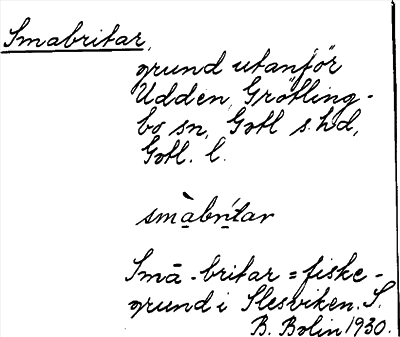 Smabritar,
grund utanför
Udden, Grötling-
bo sn, Gotl s. hd,
Gotl. l.
smàbrítar
Smā-britar = fiske-
grund i Slesviken. S.
B. Bolin 1930.